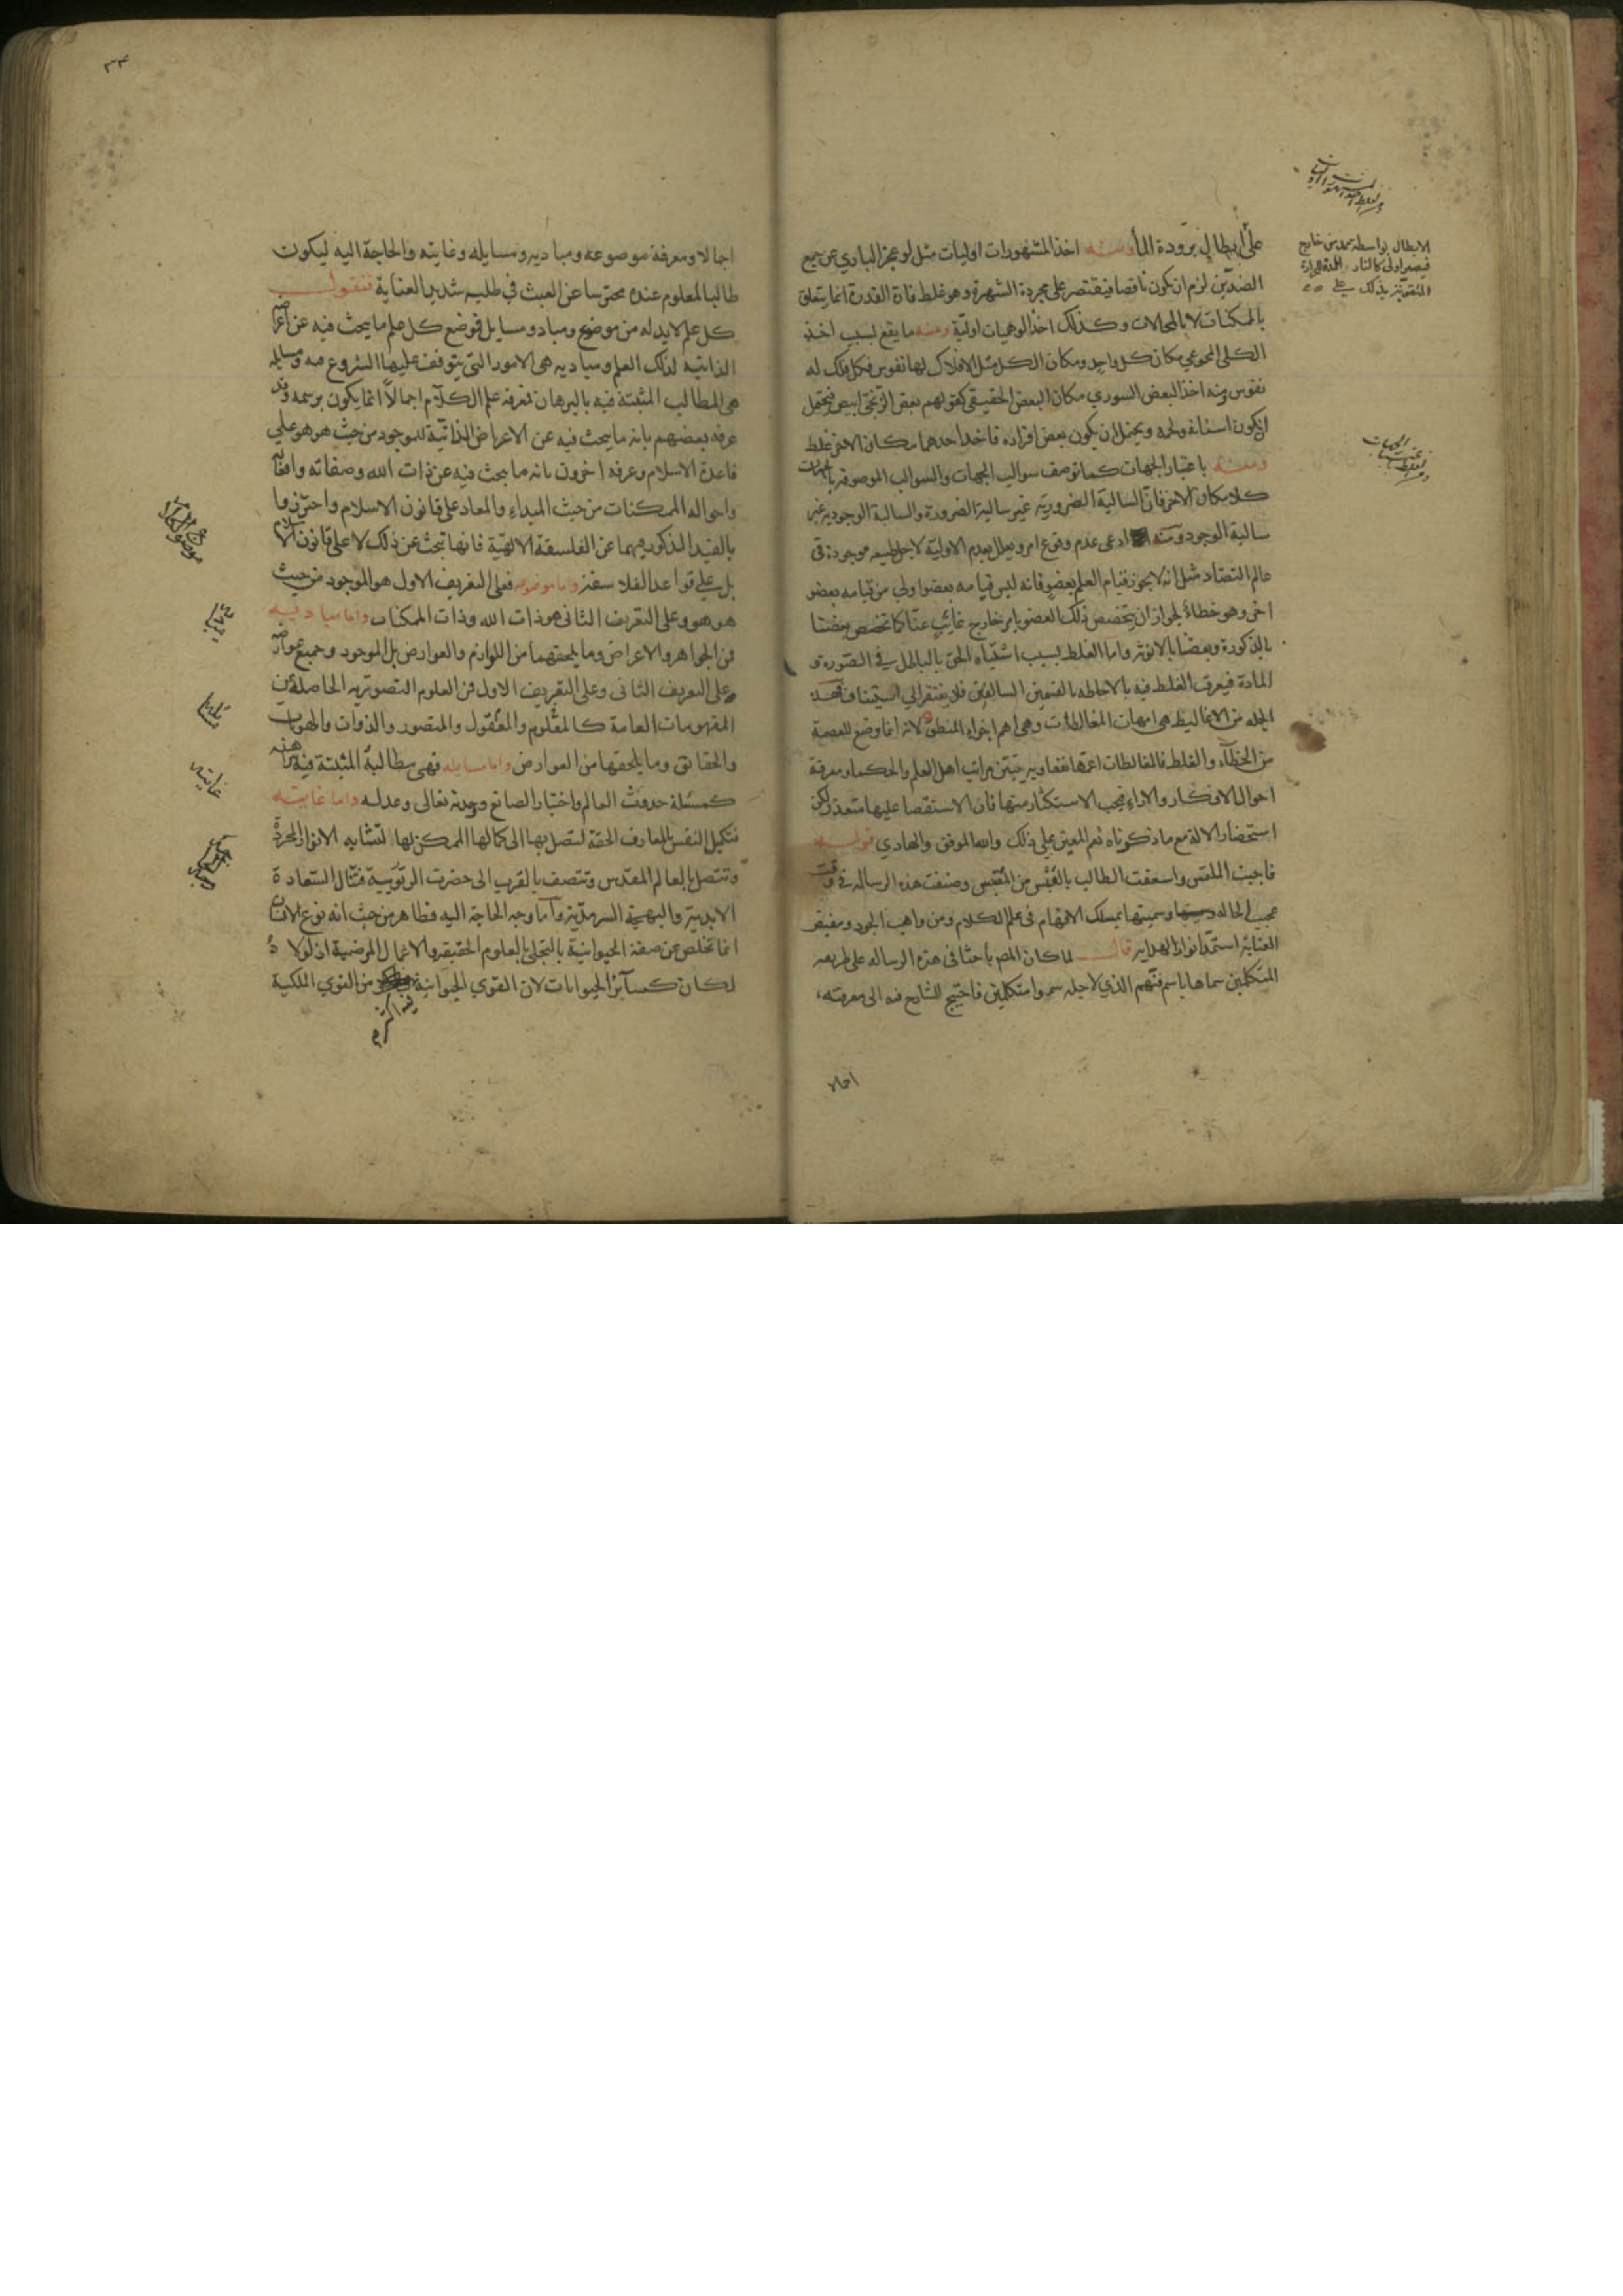 على ابطال برودة الماء ومنه اخذ المشهورات اوليات مثل لو عجز الباري عن جمع
الضدّين لزم ان يكون ناقصا فيقتصر على مجردة الشهرة وهو غلط فان القدرة انما يتعلق
بالممكنات لا بالمحالات وكذلك اخذ الوهميات اوليّة ومنه ما يقع لسبب اخذ
الكلى المجموعي مكان كل واحد ومكان الكل مثل الافلاك لها نفوس فكل فلك له
نفوس ومنه اخذ البعض السوري مكان البعض الحقيقي كقولهم بعض الزنجى ابيض فيحتمل
ان يكون اسنانه ولحمه ويحتمل ان يكون بعض افراده فاخذ احدهما مكان الاخر غلط
ومنه باعتبار الجهات كما توصف سوالب الجهات والسوالب الموصوفة بالجهات
كلا مكان الاخر فان السالبة الضرورية غير سالبة الضرورة والسالبة الوجودية غير
سالبة الوجود ومنه ادعى عدم وقوع امر ويعلل بعدم الاولية لاجل طبيعه موجودة فى
عالم التضاد مثل انه لا يجوز قيام العلم بعضو فانه ليس قيامه بعضو اولى من قيامه بعضو
اخر وهو خطاء لجواز ان يتخصص ذلك العضو بامر خارج غائب عنّا كما تخصص بعضنا
بالذكورة وبعضنا بالانوثة واما الغلط بسبب اشتباه الحق بالباطل في الصورة و
المادة فيعرف الغلط فيه بالاحاطه بالقسمين السالفين فلا يفتقر الى استيناف فهذه
الجمله من الاغاليط هى امهات المغالطات وهى اهم اجزاء المنطق لانه انما وضع للعصمة
من الخطآء والغلط فالمغالطات اعمّها نفعا وبه يتبيّن مراتب اهل العلم والحكما ومعرفة
احوال الافكار والاراء فيجب الاستكثار منها فان الاستقصا عليها متعذر لكن
استحضار الالة مع ما ذكرناه نعم المعين على ذلك والله الموفق والهادي قوله
فاجبت الملتمس واسعفت الطالب بالقبس من المقتبس وصنفت هذه الرساله في وقت
عجيب الحاله وسميتها بمسلك الافهام فى علم الكلام ومن واهب الجود ومفيض
العناية استمد انوار الهداية قال لما كان المص باحثا فى هذه الرساله على طريقه
المتكلمين سماها باسم فنّهم الذي لاجله سموا متكلمين فاحتيج للشارح فيه الى معرفته
اجمالا
الابطال بواسطة ممد من خارج
فيصير اولى كالنار
المتقوية بذلك على
٣٤
اجمالا ومعرفة موضوعه ومباديه ومسايله وغايته والحاجة اليه ليكون
طالبا لمعلوم عنده محترسا عن العبث في طلبه شديد العناية فنقول
كل علم لابد له من موضوع ومباد ومسايل فموضع كل علم ما يبحث فيه عن اعراضه
الذاتيه لذلك العلم ومباديه هى الامور التى يتوقف عليها الشروع فيه ومسايله
هى المطالب المثبتة فيه بالبرهان فمعرفة علم الكلام اجمالاً انما يكون برسمه وقد
عرفه بعضهم بانه ما يبحث فيه عن الاعراض الذاتية للموجود من حيث هو هو على
قاعدة الاسلام وعرفه اخرون بانه ما يبحث فيه عن ذات الله وصفاته وافعاله
واحواله الممكنات من حيث المبداء والمعاد على قانون الاسلام واحترزوا
بالقيد المذكور فيهما عن الفلسفة الالهيّة فانها تبحث عن ذلك لا على قانون الاسلام
بل على قواعد الفلاسفة واما موضوعه فعلى التعريف الاول هو الموجود من حيث
هو هو وعلى التعريف الثانى هو ذات الله وذات الممكنات واما مباديه
فمن الجواهر والاعراض وما يلحقهما من اللوازم والعوارض بل الموجود وجميع عوارضه
وعلى التعريف الثانى وعلى التعريف الاول فمن العلوم التصورية الحاصلة من
المفهومات العامة كالمعلوم والمعقول والمتصور والذوات والهويات
والحقائق وما يلحقها من العوارض واما مسايله فهى مطالبه المثبتة فيه
كمسئلة حدوث العالم واختيار الصانع ووحدته تعالى وعدله واما غايته
فتكميل النفس بالمعارف الحقة لتصل بها الى كمالها الممكن لها لتشابه الانوار المجردة
وتتصل بالعالم المقدس وتتصف بالقرب الى حضرت الربوبية فتنال السعادة
الابدية والبهجة السرمدية واما وجه الحاجة اليه فظاهر من حيث انه نوع الانسان
انما تخلص عن صفة الحيوانية بالتجلى بالعلوم الحقيقية والاعمال المرضية اذ لولا ذ
لكان كسآئر الحيوانات لان القوي الحيوانية من القوي الملكية
فيه اكثر
موضوع الكلام
مباديه
مسايله
غايته